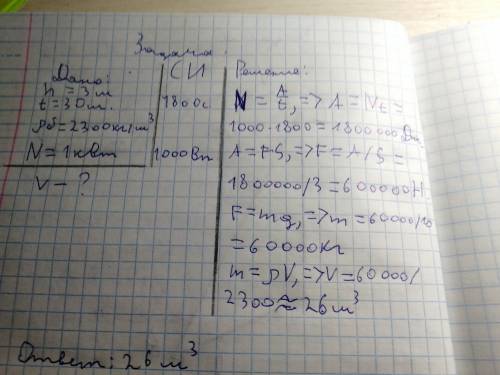 Задача.
Дано:
h = 3м
t = 30м.
ρб = 2300кг/м³
N = 1кВт
V - ?
СИ
1800с
1000Вт
Решение:
N = A/t, => A = Nt =
1000·1800 = 1800000 Дж.
A = FS, => F = A/S =
1800000/3 = 600000Н.
F = mg, => m = 60000/10
= 60000кг
m = ρV, => V = 60000/
2300 ≈ 26м³
Ответ: 26м³